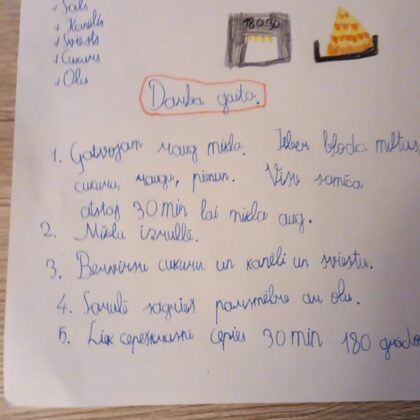 Sāls
Kanelis
Sviests
Cukurs
Olu
18030
Darba gaita.
1. Gatvojam raug mikla. Ieber bloda miltus
cukuru, raugu, pienu. Visu samīca
atstaj 30 min lai mikla aug.
2. Miklu izrullē.
3. cukuru un kanēli un sviestu.
4. Sarulē sagriež pārsmēķe au olu.
5. Liek cepeškrasni cepies 30 min 180 grādo